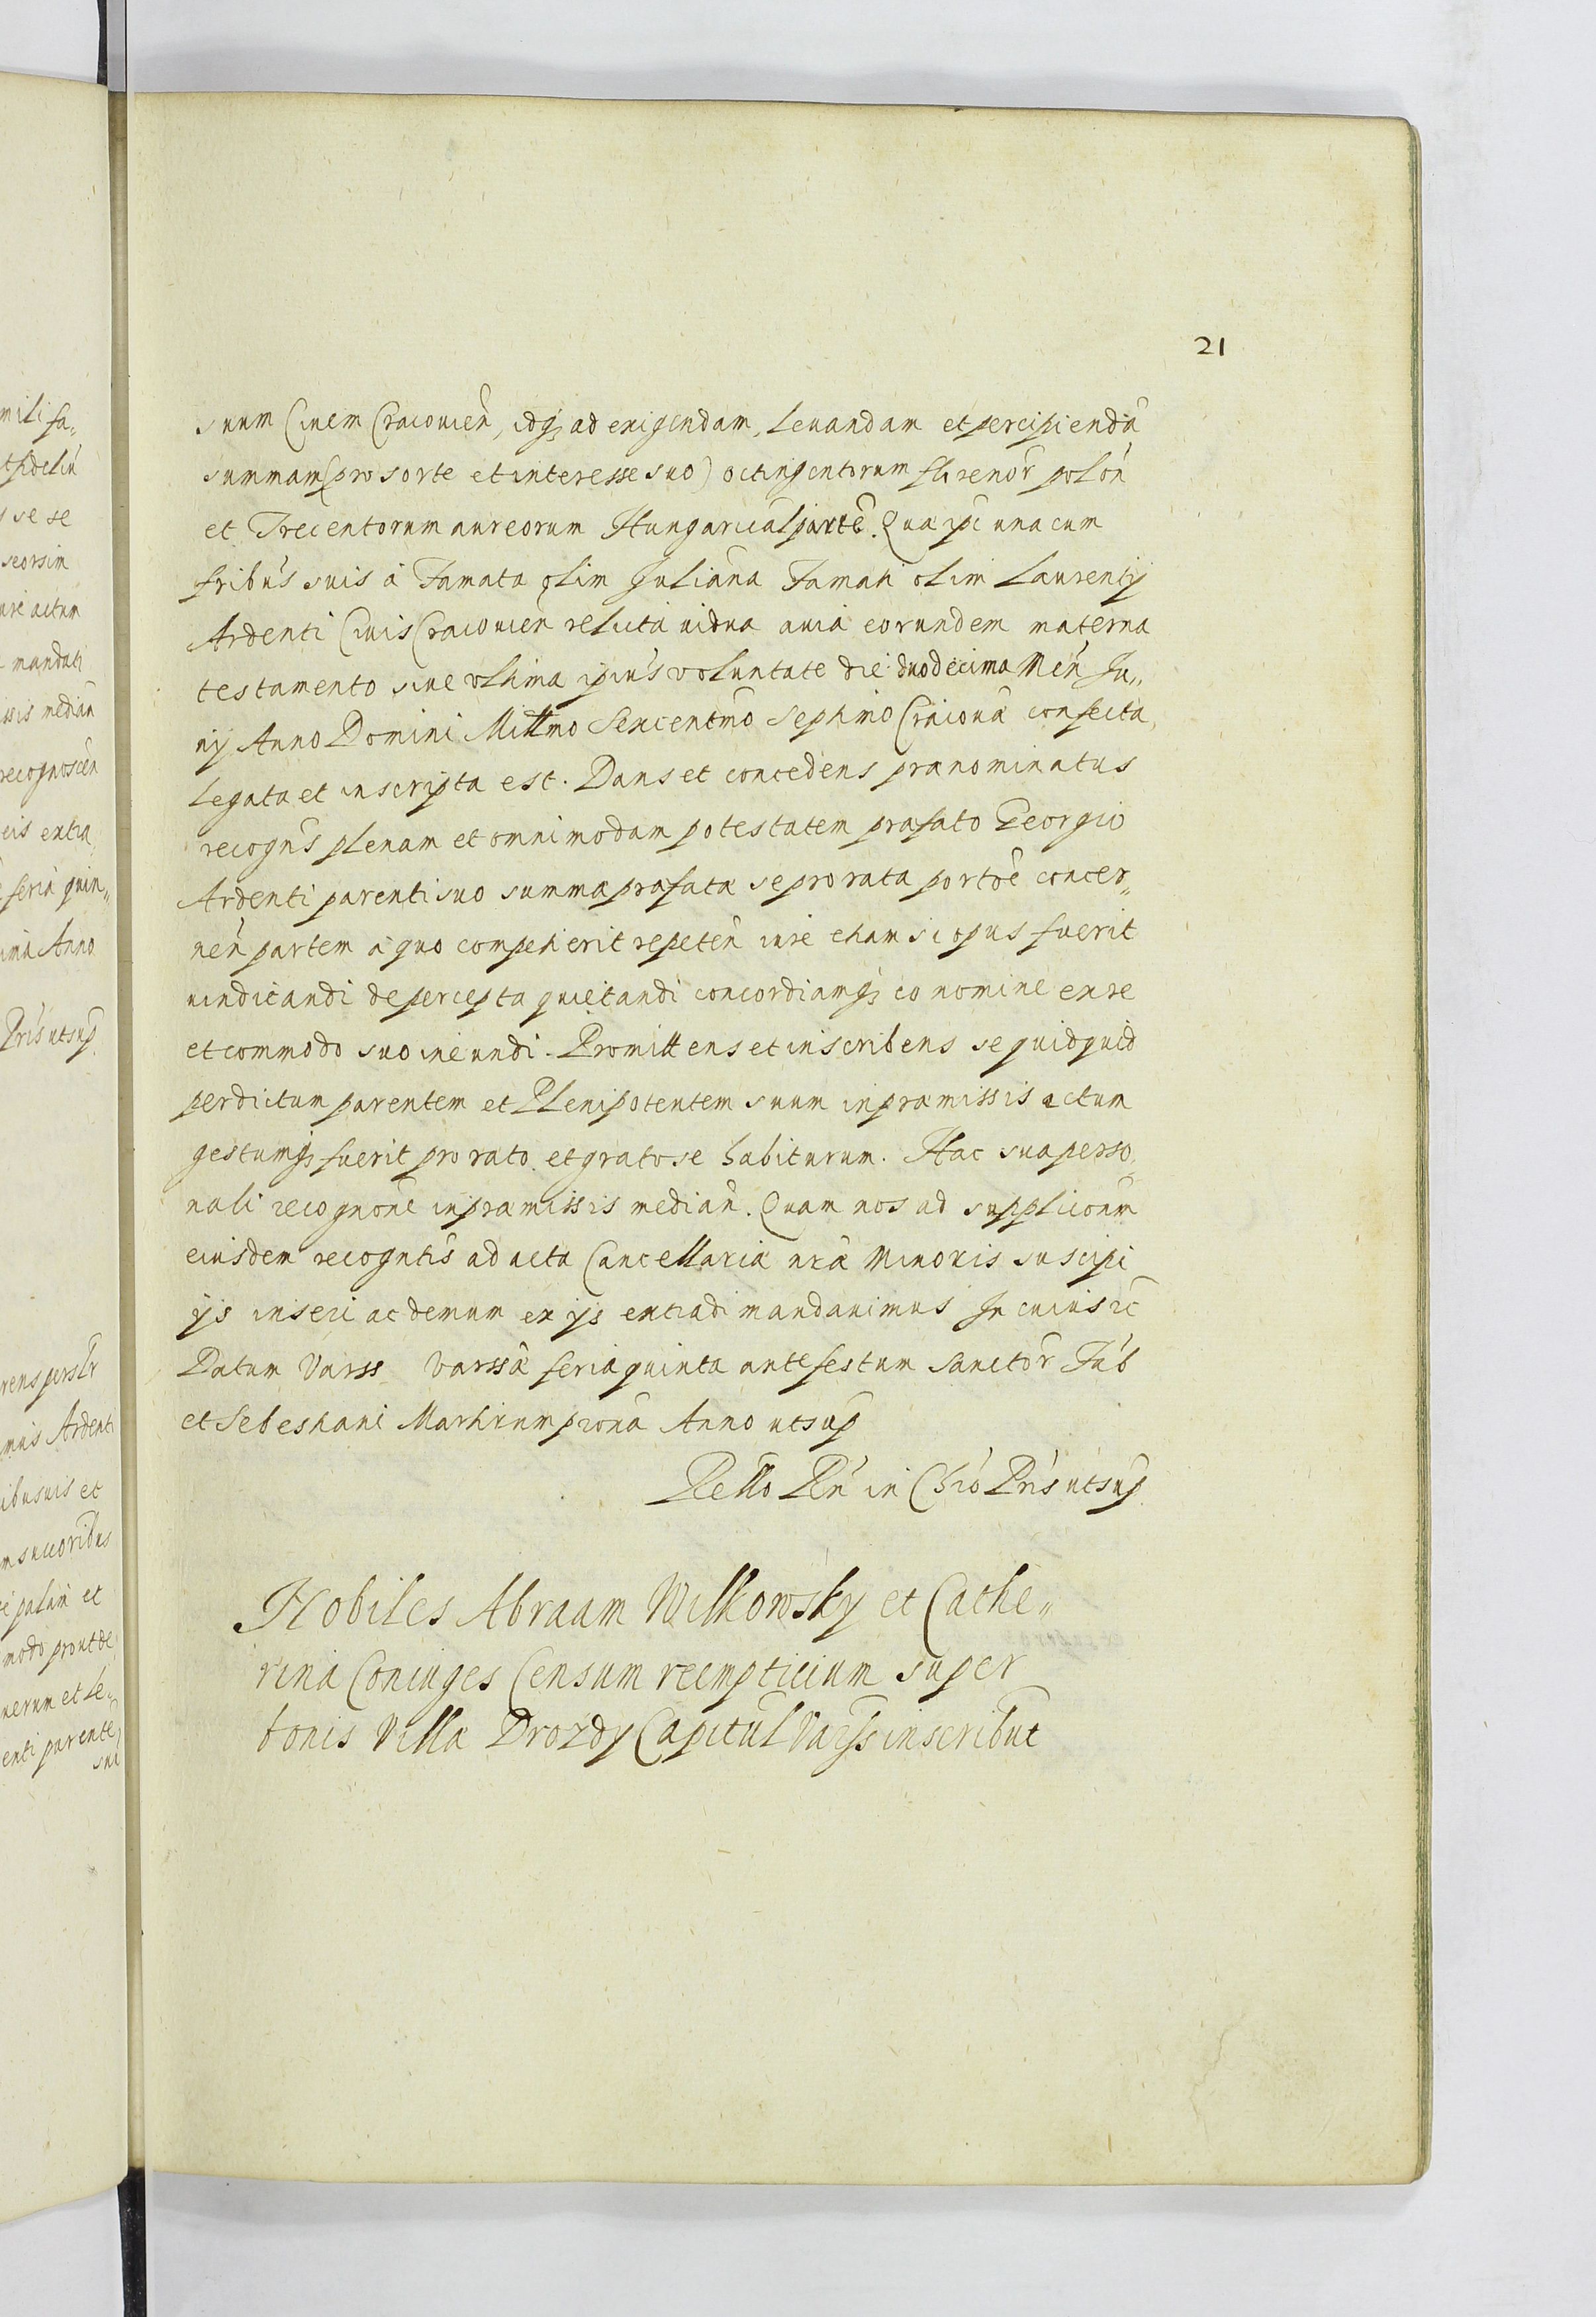 21
suum Ciuem Cracouien̄, idq₃ ad exigendam, leuandam et percipiendā
summam (pro sorte et interesse suo) octingentorum florenor̄ polon̄
et Trecentorum aureorum Hungarical partē. Qua ipi unacum
fribūs suis à Famata olim Juliana Famati olim Laurentij
Ardenti Ciuis Cracouien̄ relicta uidua auia eorundem materna
testamento siue vltima ipiūs voluntate die duodecima Men̄ Ju„
nij Anno Domini Millmo Sexcentmō Septimo Cracouā confecta,
legata et inscripta est. Dans et concedens prænominatus
recogn̄s plenam et omnimodam potestatem præfato Georgio
Ardenti parenti suo summa præfata se pro rata portōe concer„
nen̄ partem à quo competierit repeten̄ iure etiam si opus fuerit
uindicandi de percepta quietandi concordiamq₃ eo nomine ex re
et commodo suo ineundi. Promittens et inscribens se quidquid
per dictum parentem et Plenipotentem suum in præmissis actum
gestumq₃ fuerit pro rato et grato se habiturum. Hac sua perso„
nali recognōne in præmissis median̄. Quam nos ad supplicōnm
eiusdem recogntīs ad acta Cancellariæ nræ Minoris suscipi
ijs inseri ac demum ex ijs extradi mandauimus In cuius rc̄
Datum Varss Varssæ feria quinta ante festum Sanctor̄ Fāb
et Sebestiani Martirum proxā Anno ut sup
Rellō Rn̄ in Chrō Prīs ut sup
Nobiles Abraam Wilkowsky et Cathe„
rina Coniuges Censum reempticium super
bonis Villa Drozdy Capitul Varss inscribūt